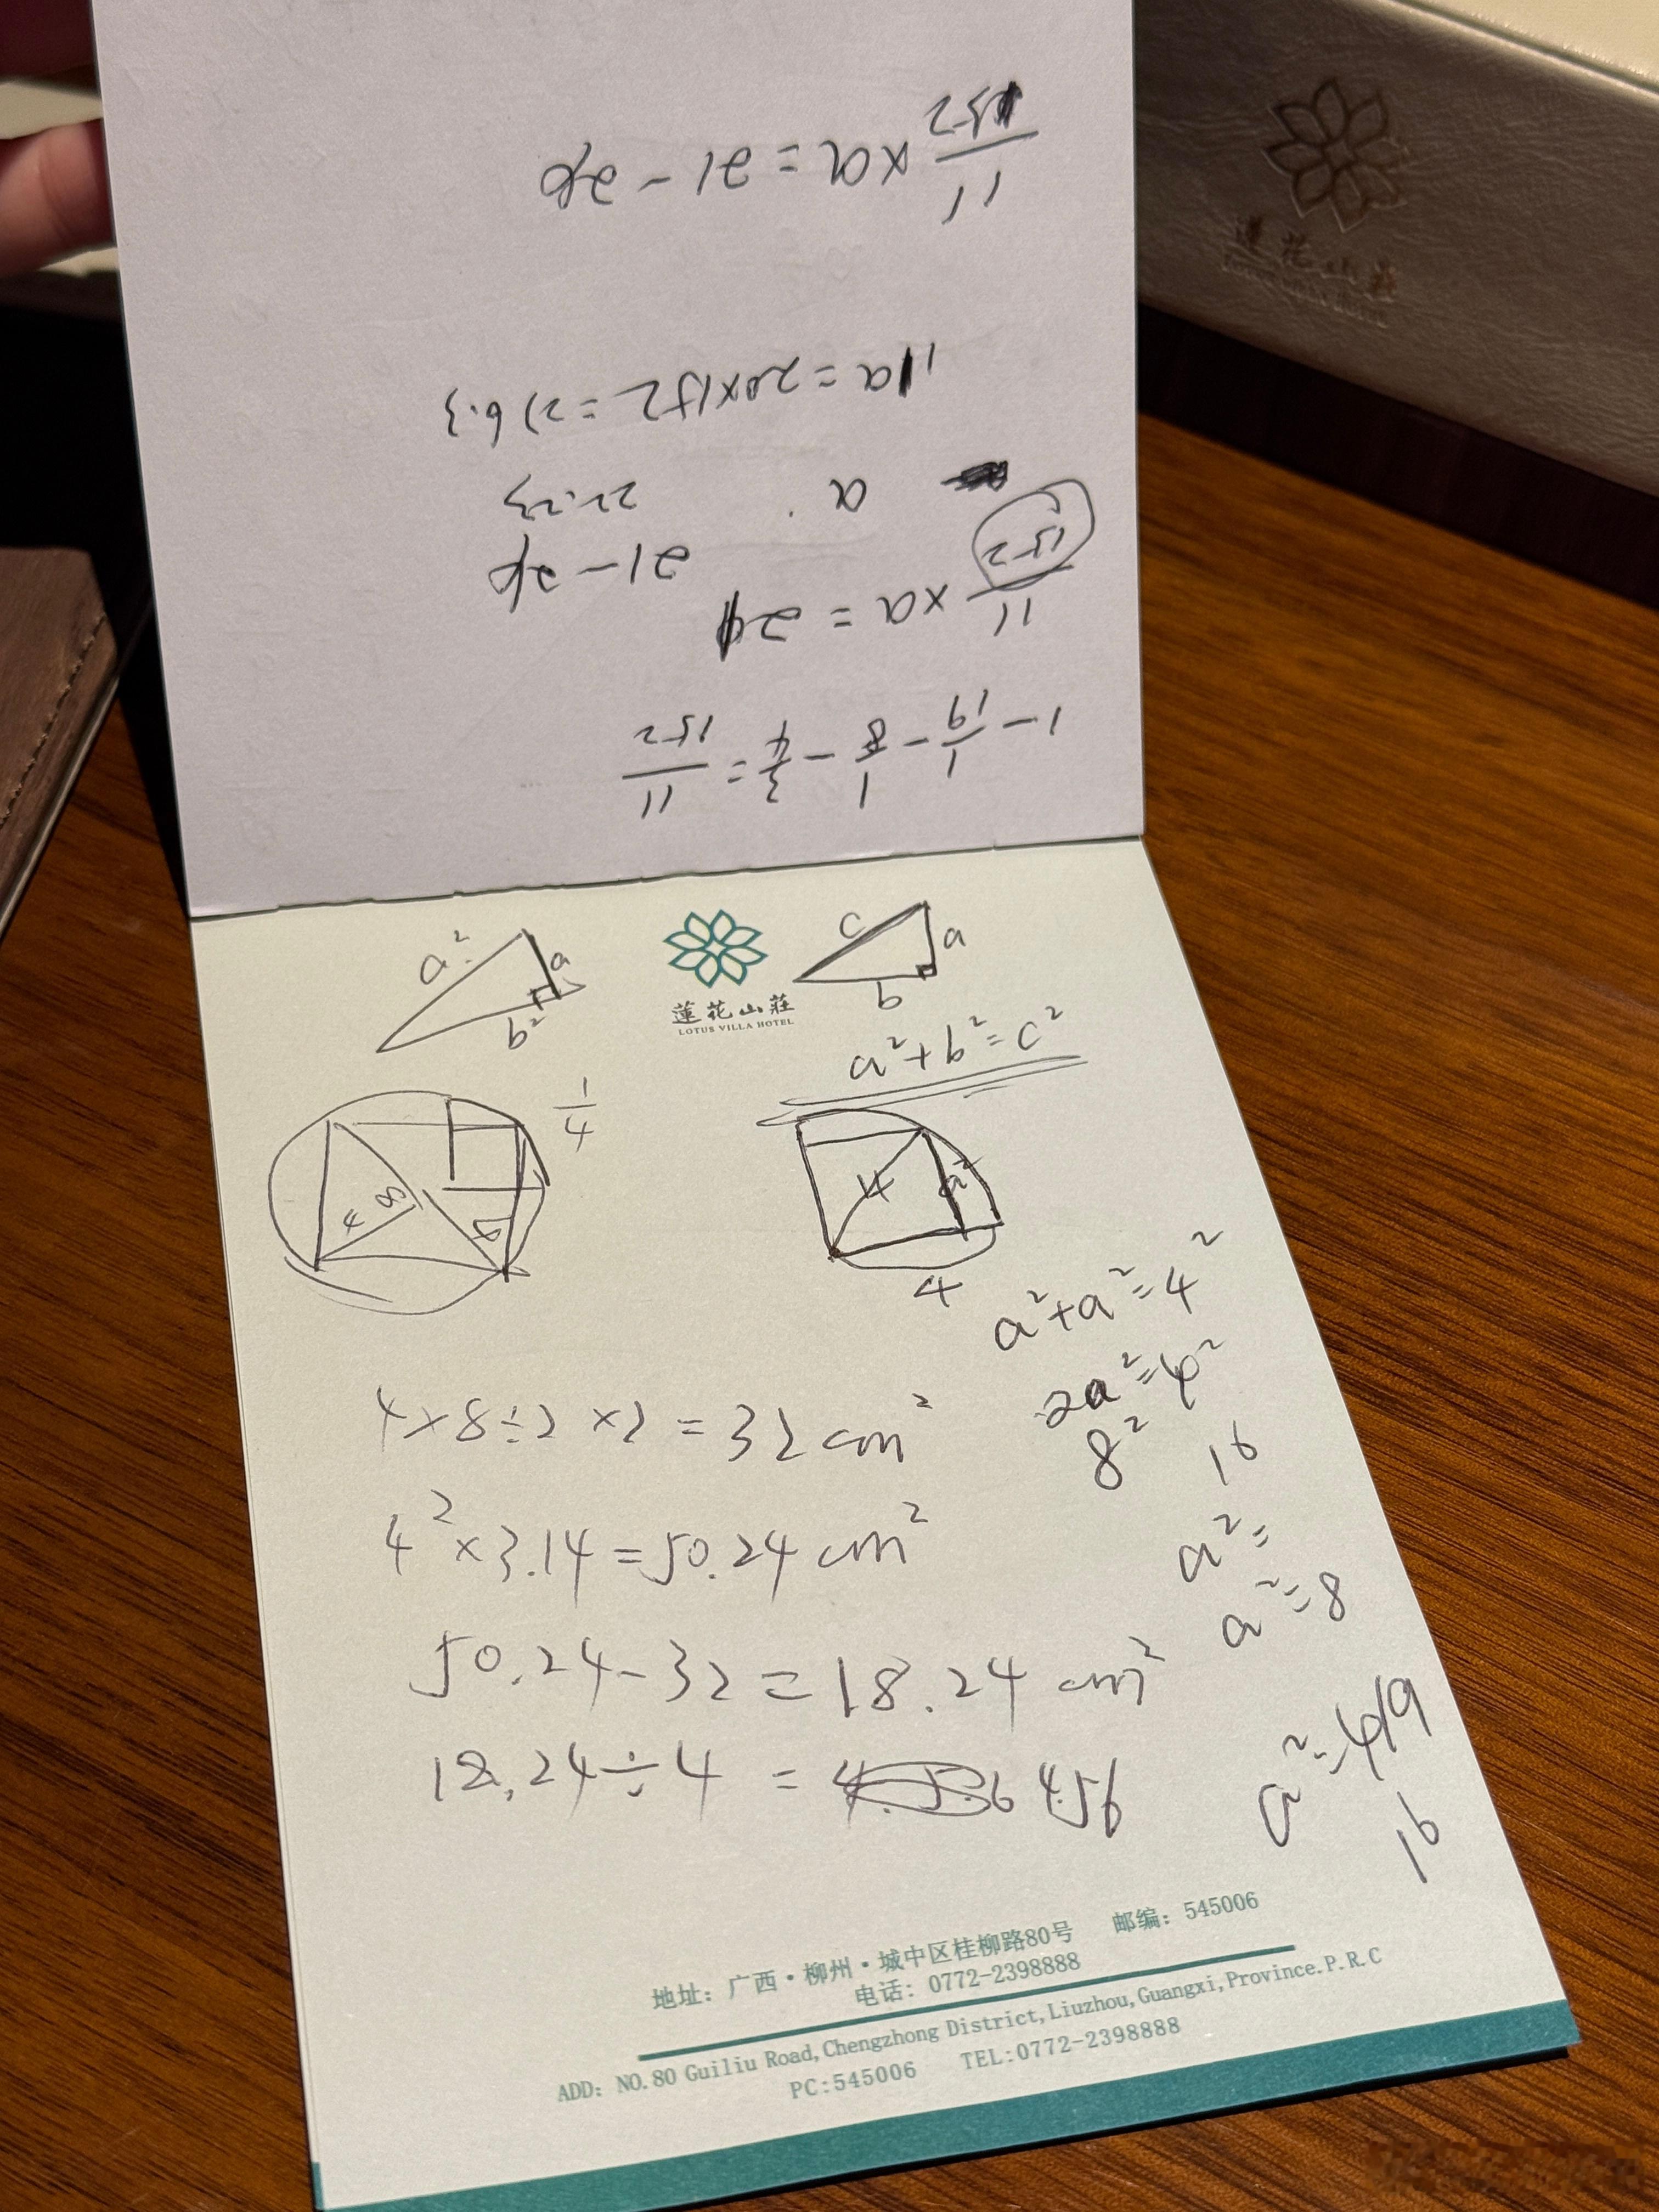 1 - 1/19 - 1/8 - 3/4 = 11/152
11/152 × a =
21 -
a
22.23
11a = 20×152 = 276.3
11/152 × a = 21 -
蓮花山莊
a²
a
b²
c
a
b
蓮花山莊
LOTUS VILLA HOTEL
a²+b²=c²
1/4
4
8
4
a²
4
a²+a²=4²
2a²=4²
8²
16
4×8÷2×2=32cm²
4²×3.14=50.24cm²
a²=
a²=8
50.24-32=18.24cm²
18.24÷4=
4.56
16
地址：广西·柳州·城中区桂柳路80号 邮编：545006
电话：0772-2398888
ADD: NO.80 Guiliu Road,Chengzhong District,Liuzhou,Guangxi,Province.P.R.C
PC:545006 TEL:0772-2398888